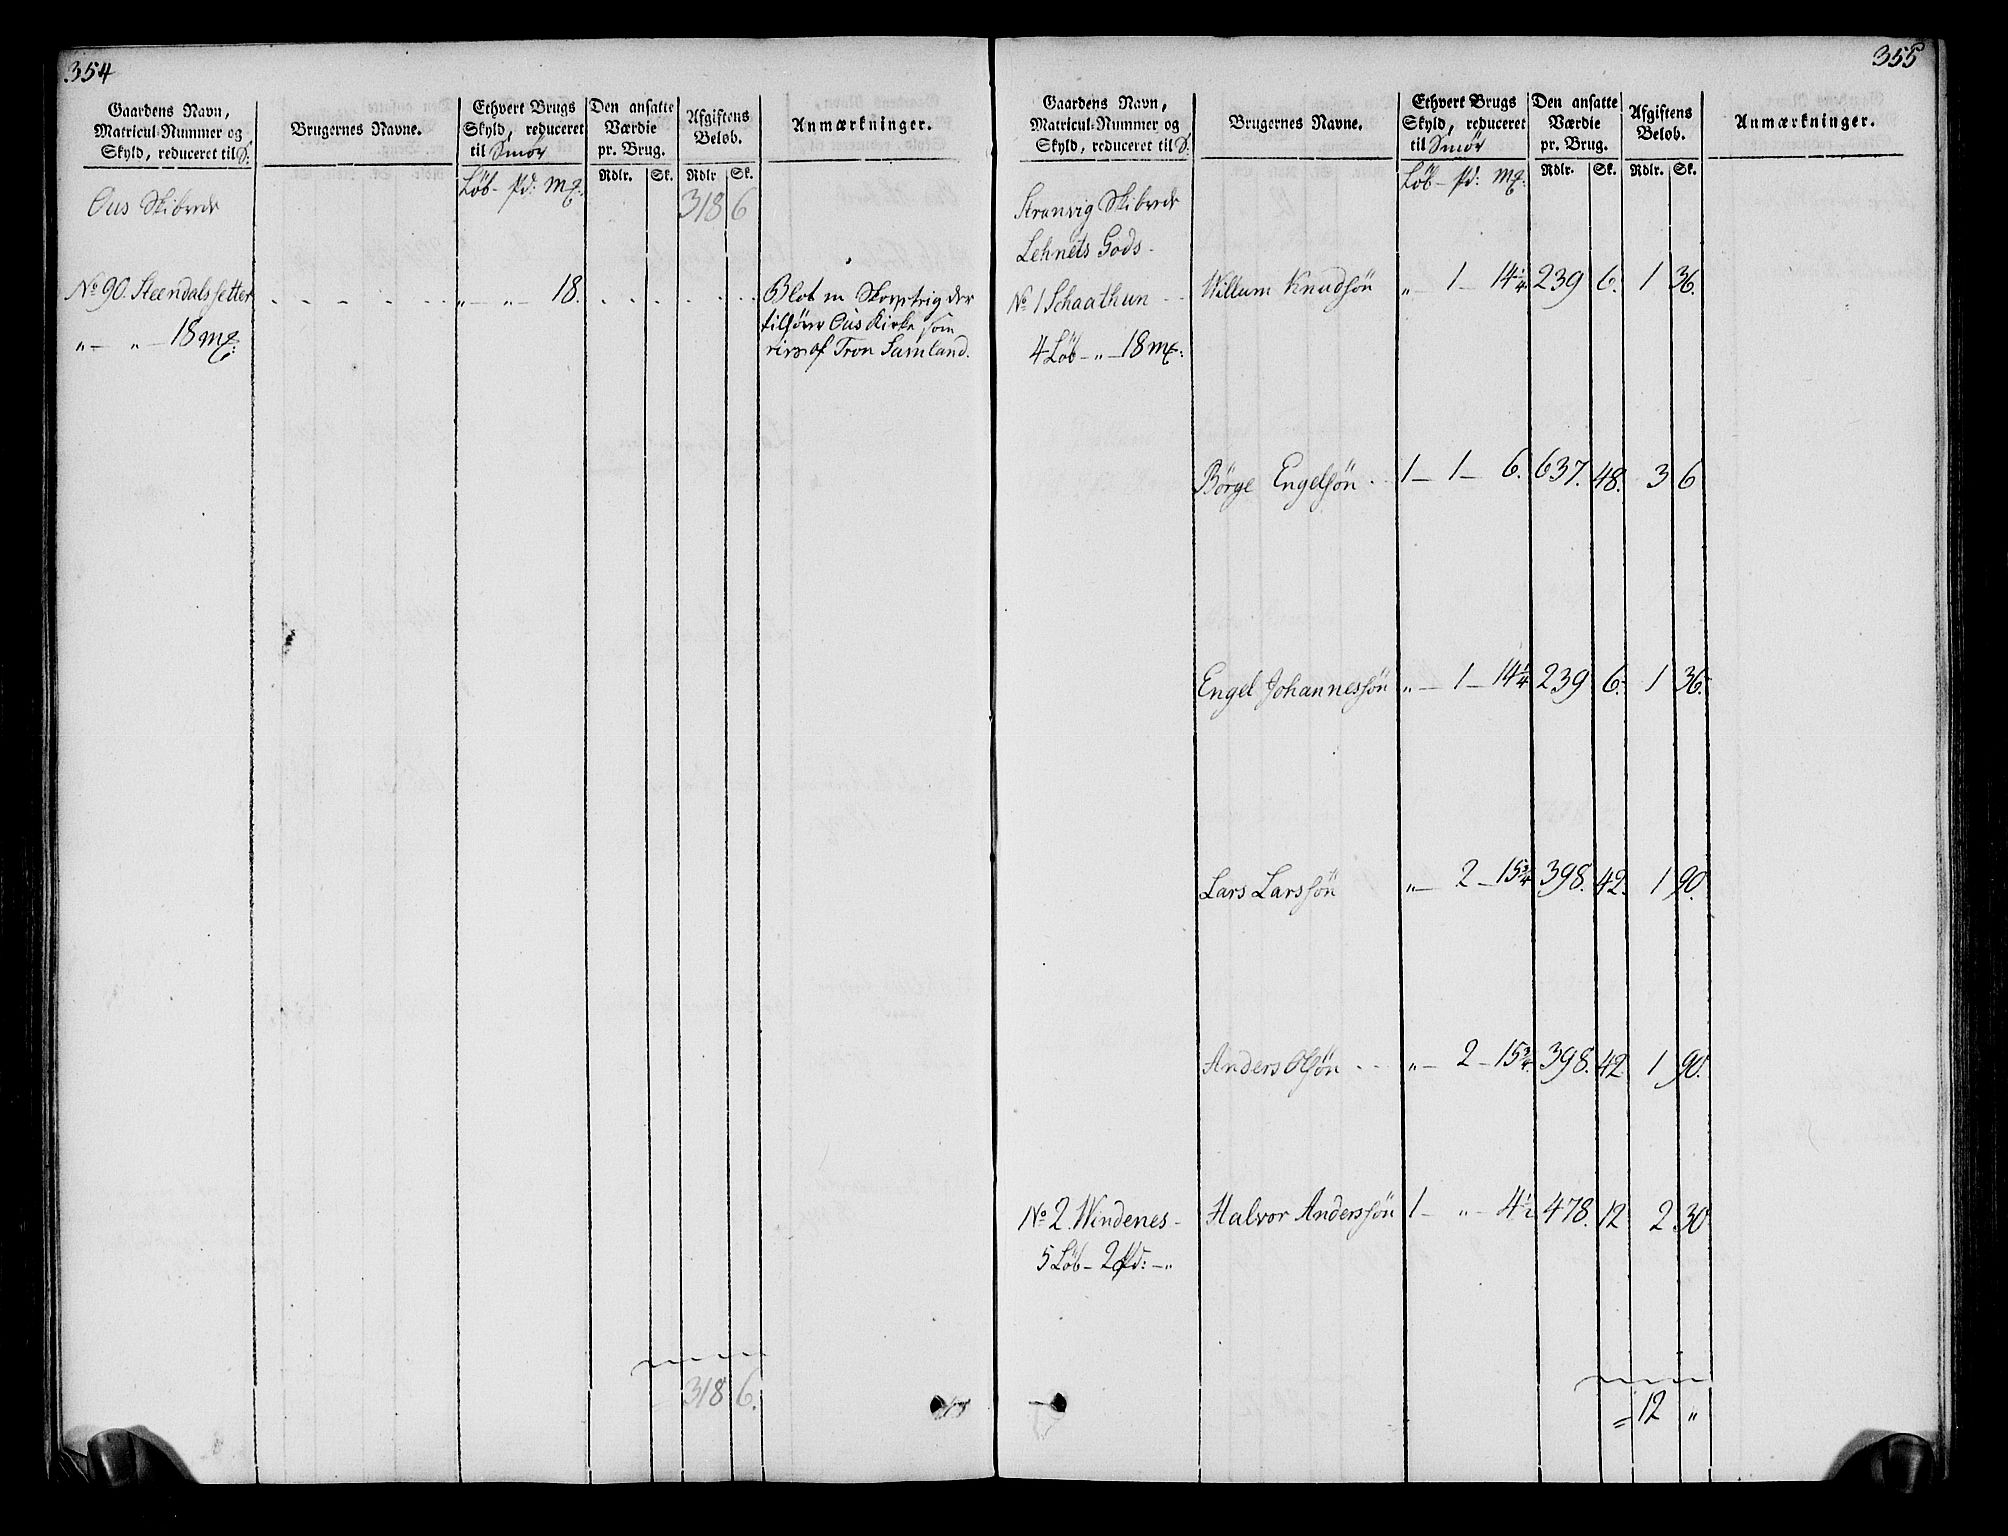 354
Gaardens Navn,
Matricul-Nummer og
Skyld, reduceret til S.
Brugernes Navne.
Ethvert Brugs
Skyld, reduceret
til Smør
Den ansatte
Værdie
pr. Brug.
Afgiftens
Beløb.
Anmærkninger.
Løb - Pd: m&:
Rdlr. Sk. Rdlr Sk.
Ous Skibrede 318 6
No 90. Steendalssetter „ — „ — 18.
„ — „ — 18 m&:
Blot en
tilhører Ous Kirke, som
af Tron Samland.
318 6.
355
Gaardens Navn,
Matricul-Nummer og
Skyld, reduceret til S.
Brugernes Navne.
Ethvert Brugs
Skyld, reduceret
til Smør
Den ansatte
Værdie
pr. Brug.
Afgiftens
Beløb.
Anmærkninger.
Løb - Pd: m&:
Rdlr. Sk. Rdlr. Sk.
Stranvig Skibrede
Lehnets Gods -
No 1 Schaathun - - Willum Knudsøn „ 1 — 14 1/4 239 6. 1 36.
4 Løb - „ — 18 m&:
Børge Engelsøn - 1 — 1 — 6. 637. 48. 3 6
Engel Johannessøn „ — 1 — 14 1/4 239 6. 1 36.
Lars Larssøn „ — 2 — 15 3/4 398. 42. 1 90.
Anders Olsøn - - „ — 2 — 15 3/4 398. 42. 1 90.
No 2. Windenes - Halvor Anderssøn 1 — „ — 4 1/2 478. 12 2 30
5 Løb - 2 Pd: - „
= 12 „